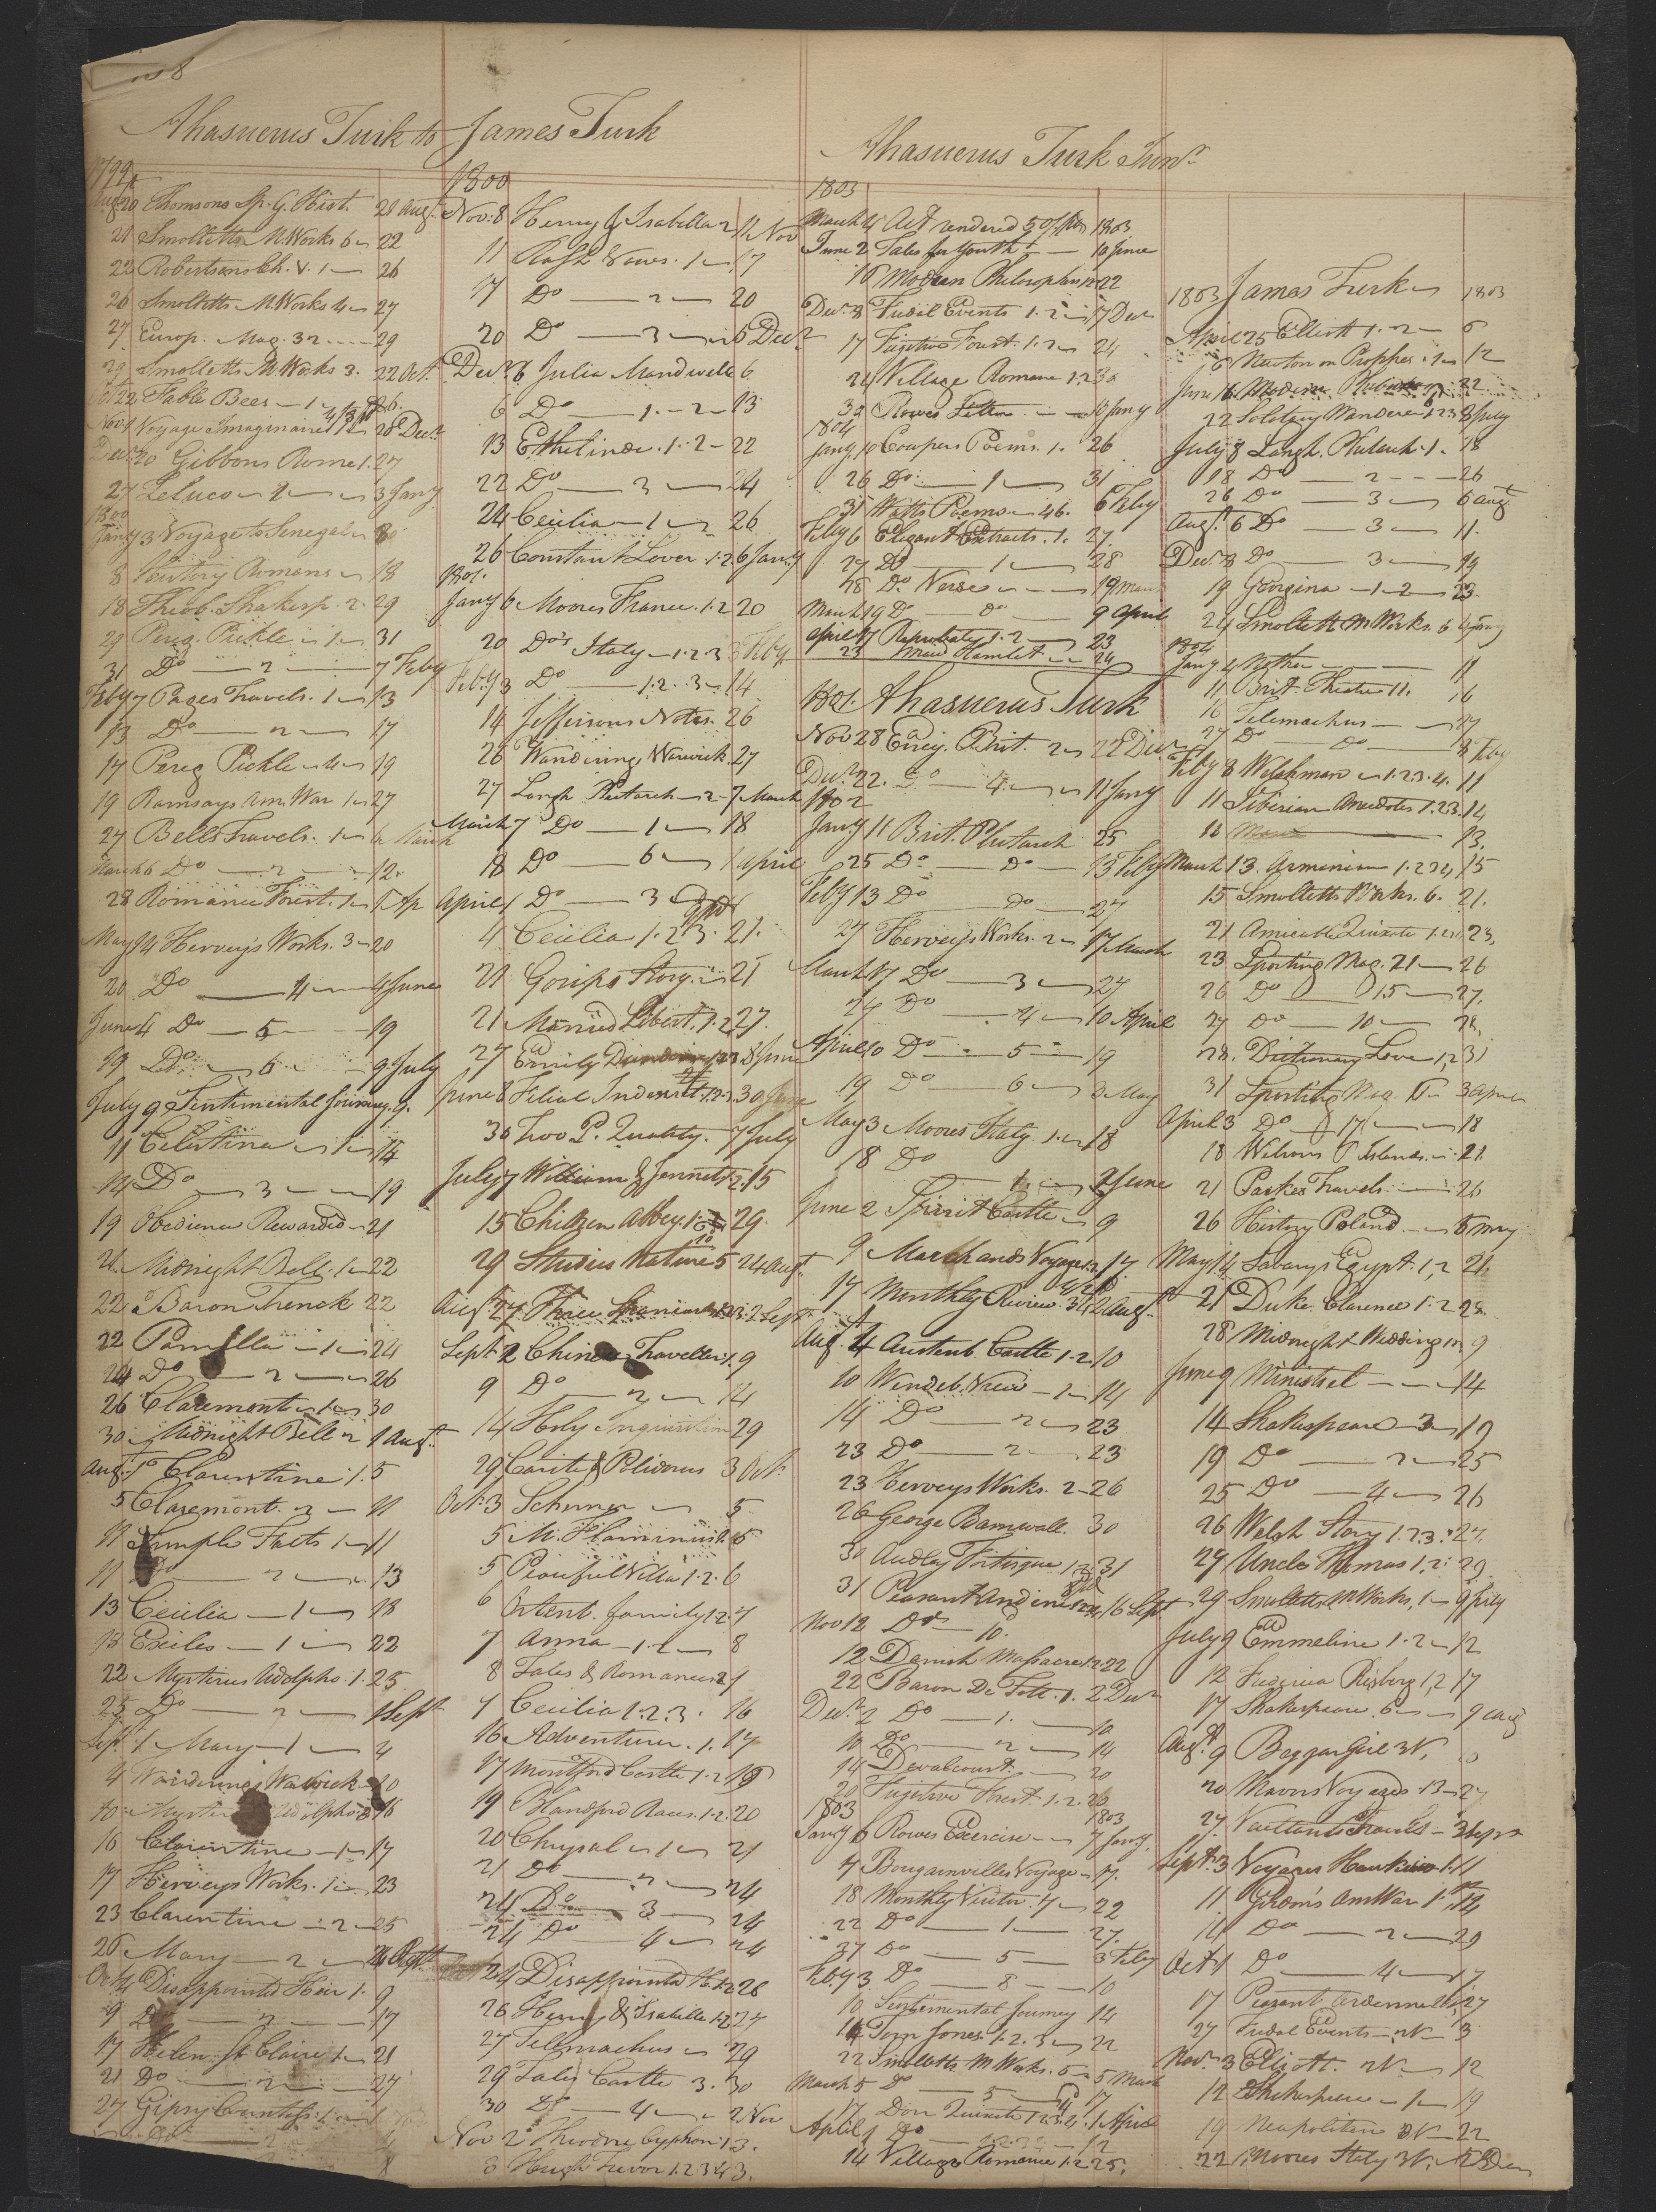 Ahasuerus Turk to James Turk
1799
Augt 20 Thomsons Sp. G. Hist. 21 Augt
21 Smolletts M. Works 6 22
22 Robertsons Ch. V. 1 26
26 Smolletts M. Works 4 27
27 Europ. Mag. 32 29
29 Smolletts M. Works 3. 22 Oct.
Oct 22 Fable Bees 1 26.
Nov 1 Voyage Imaginaire 28 Decr
Decr 20 Gibbons Rome 1. 27
27 Zeluco 2 3 Jany
1800
Jany 3 Voyage to Senegal 8
8 Romans 18
18 Theob. Shakesp. 2. 29
29 Pereg. Pickle 1 31
31 Do 2 7 Feby
Feby 7 Pages Travels. 1 13
13 Do 2 17
17 Pereg Pickle 4 19
19 Ramsays Am. War 1 27
27 Bells Travels. 1 6 March
March 6 Do 2 12
28 Romance Forest. 1 5 Ap
May 14 Herveys Works. 3 20
20 Do 4 4 June
June 4 Do 5 19
19 Do 6 9 July
July 9 Sentimental Journey. 9.
11 Celestina 1 14
14 Do 3 19
19 Obedience Rewarded 21
21 Midnight Bell. 1 22
22 Baron Trenck 22
22 Pamella 1 24
24 Do 2 26
26 Claremont 1 30
30 Midnight Bell 2 1 Augt
Augt 1 Clarentine 1. 5
5 Claremont. 2 11
11 Simple Facts 1 11
11 Do 2 13
13 Cecilia 1 18
18 Exiles 1 22
22 Mysterius Udolpho. 1. 25
25 Do 2 1 Sept
Sept. 1 Mary 1 4
4 Wanderings Warwick 10
10 Udolpho 16
16 Clarentine 1 17
17 Herveys Works. 1 23
23 Clarentine 2 25
25 Mary 2
Oct 4 Disappointed Heir 1. 9
9 Do 2 17
17 Helen St Claire 1 21
21 Do 2 27
27 Gipsy Countess 1
1800
Nov. 8 Henry & Isabella 2 11 Nov
11 Rash Vows. 1 17
17 Do 2 20
20 Do 3 6 Decr
Decr 6 Julia Mandevelle 6
6 Do 1. 2 13
13 Ethelinde. 1. 2 22
22 Do 3 24
24 Cecilia 1 26
26 Constant Lover 1. 2 6 Jany
1801.
Jany 6 Moores France. 1. 2 20
20 Dos Italy 1. 2. 3 3 Feby
Feby 3 Do 1. 2. 3 14
14 Jeffersons Notes. 26
26 Wanderings Warwick. 27
27 Langh Plutarch 2 7 March
March 7 Do 1 18
18 Do 6 1 April
April 1 Do 3
4 Cecilia 1. 2 3. 21.
21 Gosips Story 21
21 Married Libert. 1. 2 27.
27 Emily 1 2 3 8 June
June 8 Filial 1. 2. 30 June
30 Two P. Quality. 7 July
July 7 William & Jennet 1. 2 15
15 Children Abbey 1. 29.
29 Studies Nature 5 24 Augt
Augt 27 Three Spaniards 1. 2. 3 2 Sept
Sept 2 Chinese Traveller 1. 9
9 Do 2 14
14 Holy Inquisition 29
29 Carite & Polidorus 3 Oct
Oct. 3 5
5 M. Flaminius 1. 5
5 Peaceful Villa 1. 2. 6
6 Ortenb. family 1. 2. 7
7 Anna 1. 2 8
8 Tales & Romances 2 9
9 Cecilia 1. 2. 3. 16
16 Adventurer. 1. 17
17 Montford Castle 1. 2. 19
19 Blandford Races. 1. 2. 20
20 Chrysal 1 21
21 Do 2 24
24 Do 3 24
24 Do 4 24
24 Disappointed H. 1. 2 26
26 Henry & Isabella 1. 2 27
27 Telemachus 29
29 Tales Castle 3. 30
30 Do 4 2 Nov
Nov 2 Theodore Cyphon 1. 3.
3 Hugh Trevor 1. 2 3 4 3.
Ahasuerus Turk Junr
1803
March 14 Act rendered 1803
June 2 Tales for Youth 16 June
16 Modern Philosophers 22
Decr 8 Fudal Events 1. 2 17 Dec
17 Fugitive Forest. 1. 2 24
24 Village Romance 1. 2
30 Rowes Letters 10 Jany
1804
Jany. 10 Cowpers Poems. 1. 26
26 Do 1 31
31 Watts Poems 46. 6 Feby
Feby 6 Elegant Extracts. 1. 27.
27 Do 1 28
28 Do Verse 19 March
March 19 Do do 9 April
April 17 Reprobate 1. 2 23
23 Maid Hamlet 24
1801. Ahasuerus Turk
Nov 28 Encg. Brit. 2 22 Decr
Decr 22. Do 4 11 Jany
1802
Jany 11 Brit. Plutarch 25
25 Do Do 13 Feby
Feby 13 Do Do 27
27 Herveys Works. 2 17 March
March 17 Do 3 27
24 Do 4 10 April
April 10 Do 5 19
19 Do 6 3 May
May 3 Moores Italy. 1 18
18 Do 1 2 June
June 2 Spirit Castle 9
9 Marchands Voyage 1. 2 17
17 Monthly Review. 34 2 Augt
Augt 4 Austenb. Castle 1. 2. 10
10 Wendeb. View 1 14
14 Do 2 23
23 Do 2 23
23 Herveys Works. 2 26
26 George Barnwall. 30
30 Audley Fortisque 1. 2 31
31 Peasant Ardenes 16 Sept
Nov 12 Do 10.
12 Danish Massacre 1. 2 22
22 Baron De Tott. 1. 2 Decr
Decr 2 Do 1. 10
10 Do 2 14
14 Devalcourt 20
20 Fugitive Forest. 1. 2. 26
1803 1803
Jany 6 Rowes Exercise 7 Jany
7 Bougainvilles Voyage 17.
18 Monthly Visitor. 7 22
22 Do 1 27.
27 Do 5 3 Feby
Feby 3 Do 8 10
10 Sentimental Journey 14
14 Tom Jones. 1. 2. 3 22
22 Smolletts M Works. 5 5 March
March 5 Do 5 17
17 Don Quixote 1 2 3 4. 1 April
April 1 Do 12
14 Village Romance 1. 2 25.
1803 James Turk 1803
April 25 Elliott 1. 2 6
6 Newton on Prophes. 1 12
June 16 Modern 22
22 Solitary Wanderer 1 2 3 8 July
July 8 Langh. Plutarch. 1. 18
18 Do 2 26
26 Do 3 6 Augt
Augt. 6 Do 3 11.
Decr. 8 Do 3 19
19 Georgina 1. 2 23
24 Smollett M Works. 6 4 Jany
1804
Jany. 4 11
11 Brit. Theatre 11. 16
16 Telemachus 27
27 Do Do 8 Feby
Feby 8 Welchman 1. 2 3. 4. 11
11 Siberian Anecdotes 1. 2 3. 14
March 13. Armenian 1. 2 3 4 15
15 Smolletts Works. 6. 21.
21 Amicable Quixote 23,
23 Sporting Mag. 21 26
26 Do 15 27.
27 Do 10 28,
28. Dictionary Love 1, 2 31
31 Sporting Mag. 3 April
April 3 Do 17 18
18 Wilsons P Islands 21.
21 Parkes Travels 26
26 History Poland 5 May
May 14 Savarys Egypt. 1, 2 21.
21 Duke Clarence 1. 2 28.
28 Midnight Wedding 9
June 9 Minstrel 14
14 Shakespeare 3 19
19 Do 2 25
25 Do 4 26
26 Welsh Story 1. 2 3. 27.
27 Uncle Thomas 1. 2: 29.
29 Smolletts M Works, 1 9 July
July 9 Emmeline 1. 2 12
12 Frederica Risberg 1, 2 17
17 Shakespeare. 6 9 Aug
Augt. 9 Beggar Girl 3V.
20 Mavors Voyages. 13 27
27. Vaillants Travels 3 Sept
Sept. 3 Voyages 11
11. Gordon's Am War 1. 14
14 Do 2 29
Oct 1 Do 4 17
17 Peasant Ardennelle 27
27 Fudal Events 2V 3
Nov. 3 Elliott. 2V 12
12 Shakespeare 1 19
19 Neapolitan 3V 22
22 Moores Italy 3V. 5 Dec